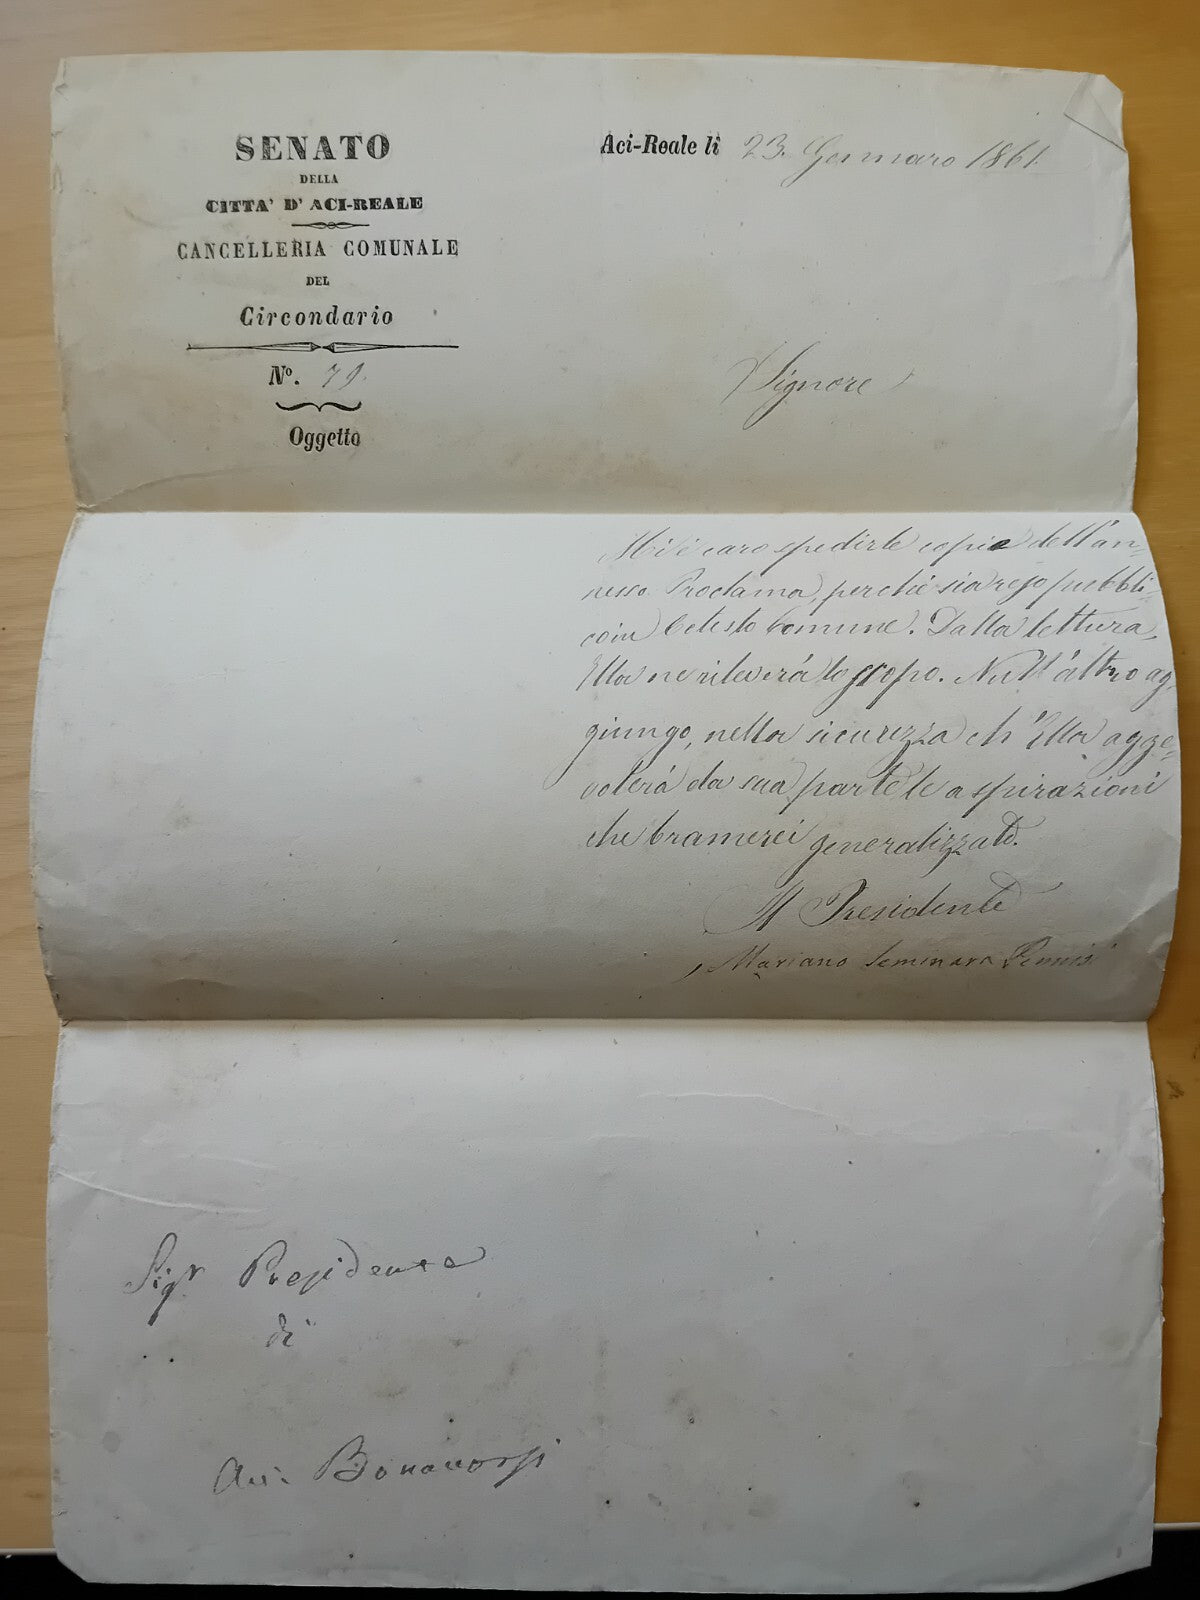 SENATO
DELLA
CITTA' D' ACI-REALE
CANCELLERIA COMUNALE
DEL
Circondario
Nº. 79.
Oggetto
Aci-Reale li 23. Gennaro 1861.
Signore
Mi è caro spedirle copia dell'an-
nesso Proclama, perchè sia reso pubbli-
co in Cotesto Comune. Dalla lettura,
Ella ne rileverà lo scopo. Null'altro ag-
giungo, nella sicurezza ch'Ella agge-
volerà da sua parte le aspirazioni
che bramerei generalizzate.
Il Presidente
Mariano Seminara Pennisi
Sigr Presidente
di
Aci Bonaccorsi